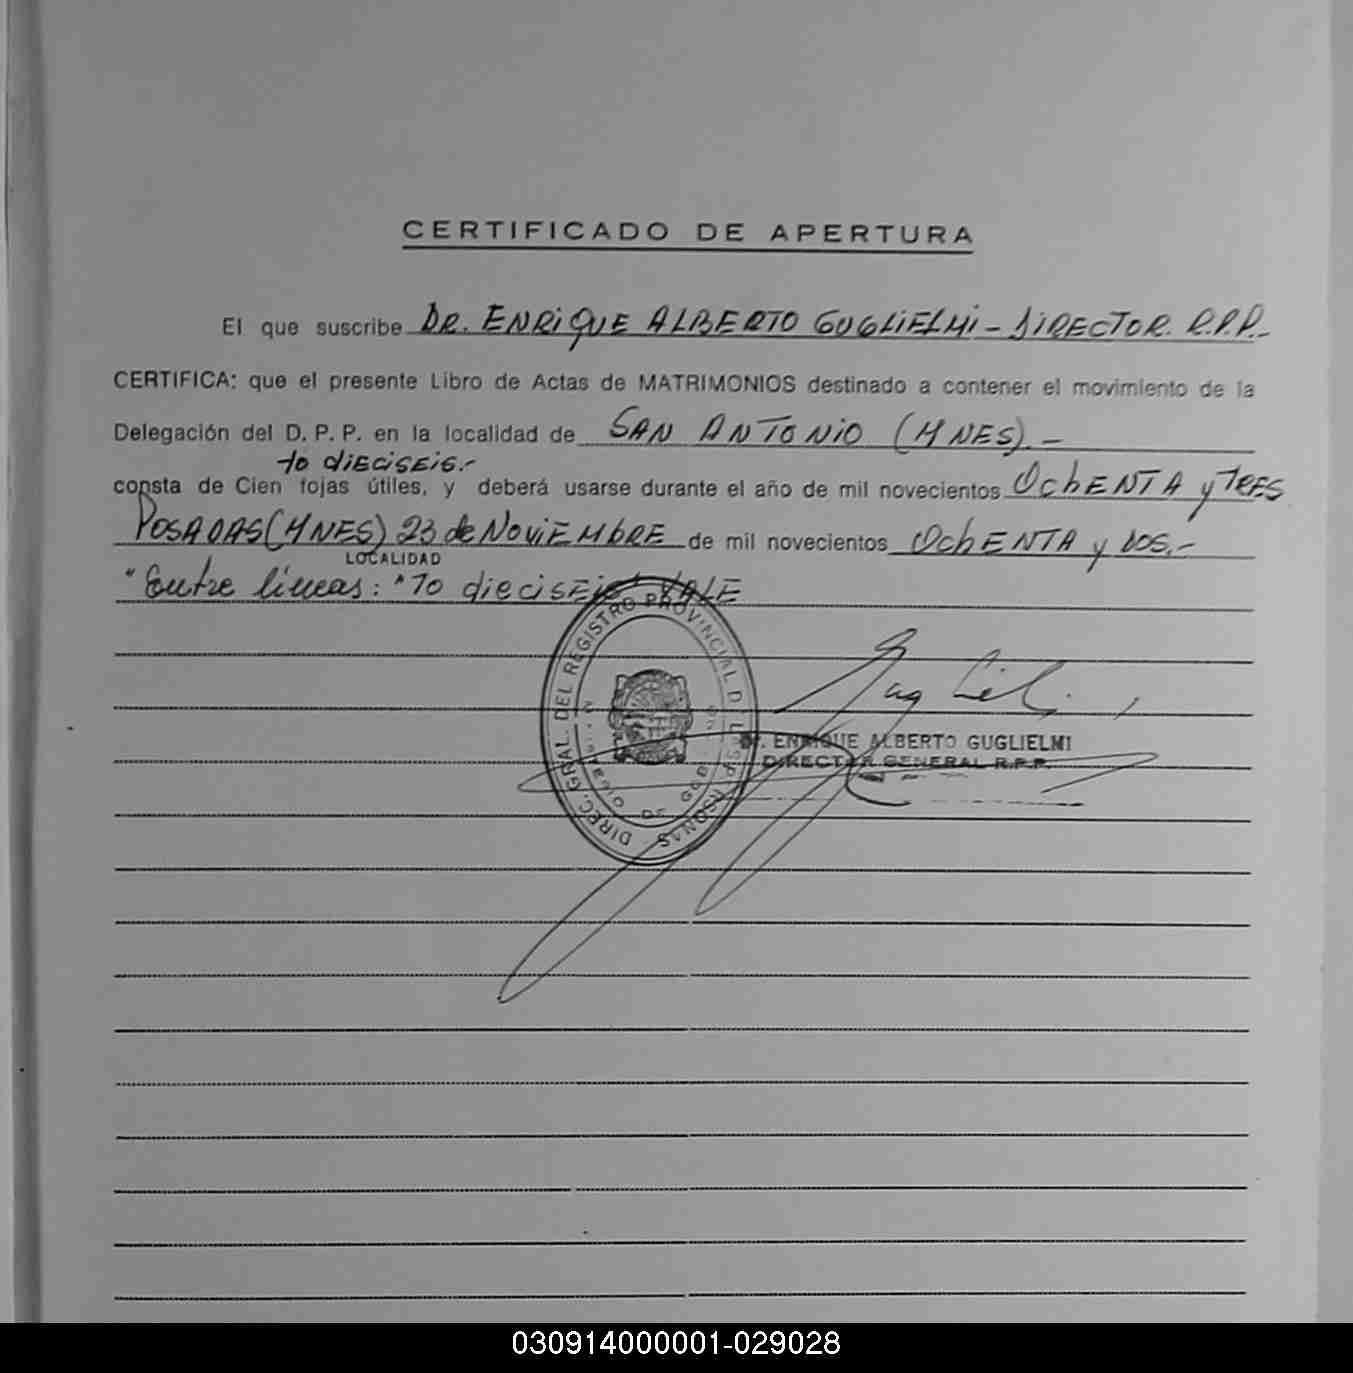 CERTIFICADO DE APERTURA
El que suscribe DR. ENRIQUE ALBERTO GUGLIELMI - DIRECTOR. R.P.P.-
CERTIFICA: que el presente Libro de Actas de MATRIMONIOS destinado a contener el movimiento de la
Delegación del D. P. P. en la localidad de SAN ANTONIO (MNES). -
to DIECISEIS.-
consta de Cien fojas útiles, y deberá usarse durante el año de mil novecientos OchENTA y TRES
POSADAS (MNES) 23 de NOVIEMbRE de mil novecientos OchENTA y DOS.-
LOCALIDAD
"Entre líneas: "TO dieciseis" VALE
DIREC. GRAL. DEL REGISTRO PROVINCIAL D LAS PERSONAS
DE GOB
Dr. ENRIQUE ALBERTO GUGLIELMI
DIRECTOR GENERAL R.P.P.
030914000001-029028